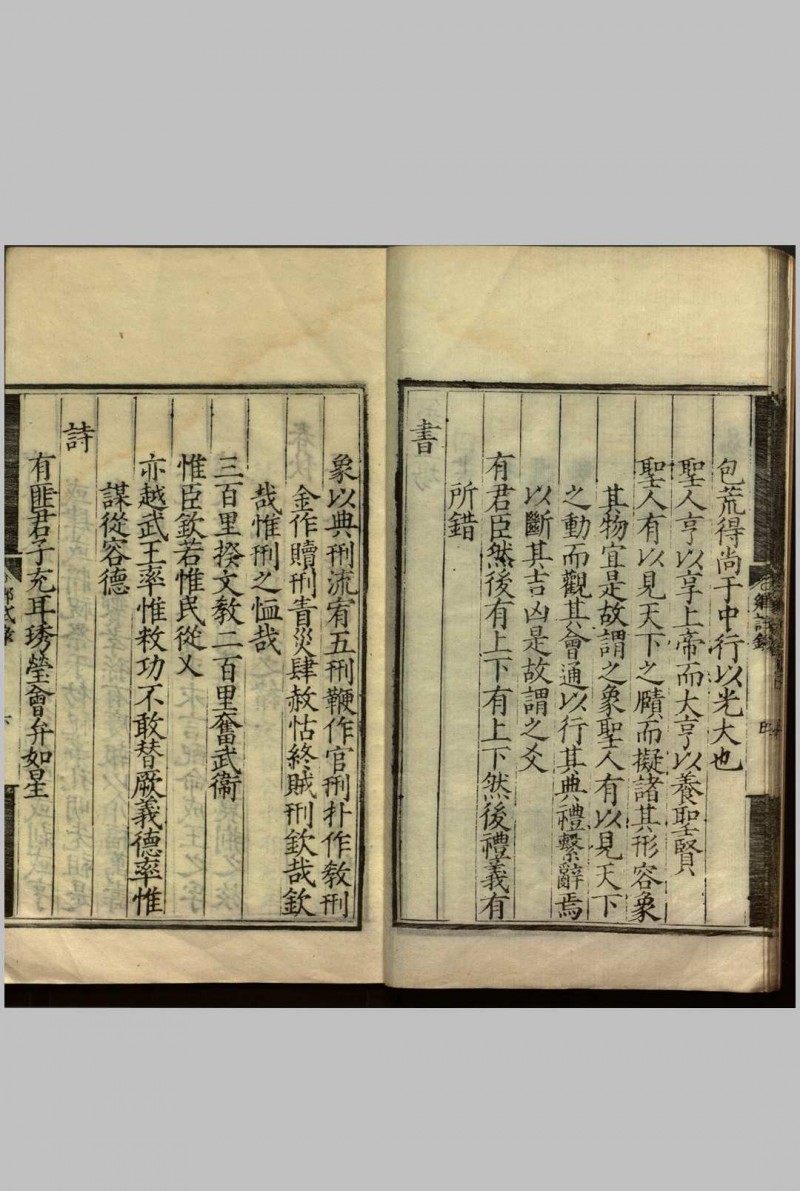 包荒得尚于中行以光大也
聖人亨以享上帝而大亨以養聖賢
聖人有以見天下之賾而擬諸其形容象
其物宜是故謂之象聖人有以見天下
之動而觀其會通以行其典禮繫辭焉
以斷其吉凶是故謂之爻
有君臣然後有上下有上下然後禮義有
所錯
書
象以典刑流宥五刑鞭作官刑扑作教刑
金作贖刑眚災肆赦怙終賊刑欽哉欽
哉惟刑之恤哉
三百里揆文教二百里奮武衛
惟臣欽若惟民從乂
亦越武王率惟敉功不敢替厥義德率惟
謀從容德
詩
有匪君子充耳琇瑩會弁如星